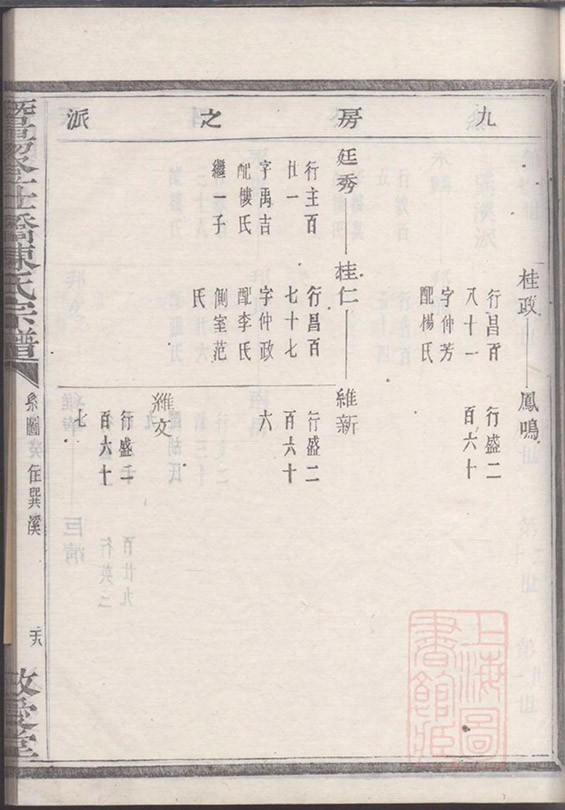 九房之派
桂政
行昌百
八十一
字仲芳
配楊氏
鳳鳴
行盛二
百六十
廷秀
行主百
廿一
字禹吉
配樓氏
繼一子
桂仁
行昌百
七十七
字仲政
配李氏
側室范
氏
維新
行盛二
百六十
六
維文
行盛二
百六十
七
陳氏宗譜
系圖
住巽溪
上海圖
書館